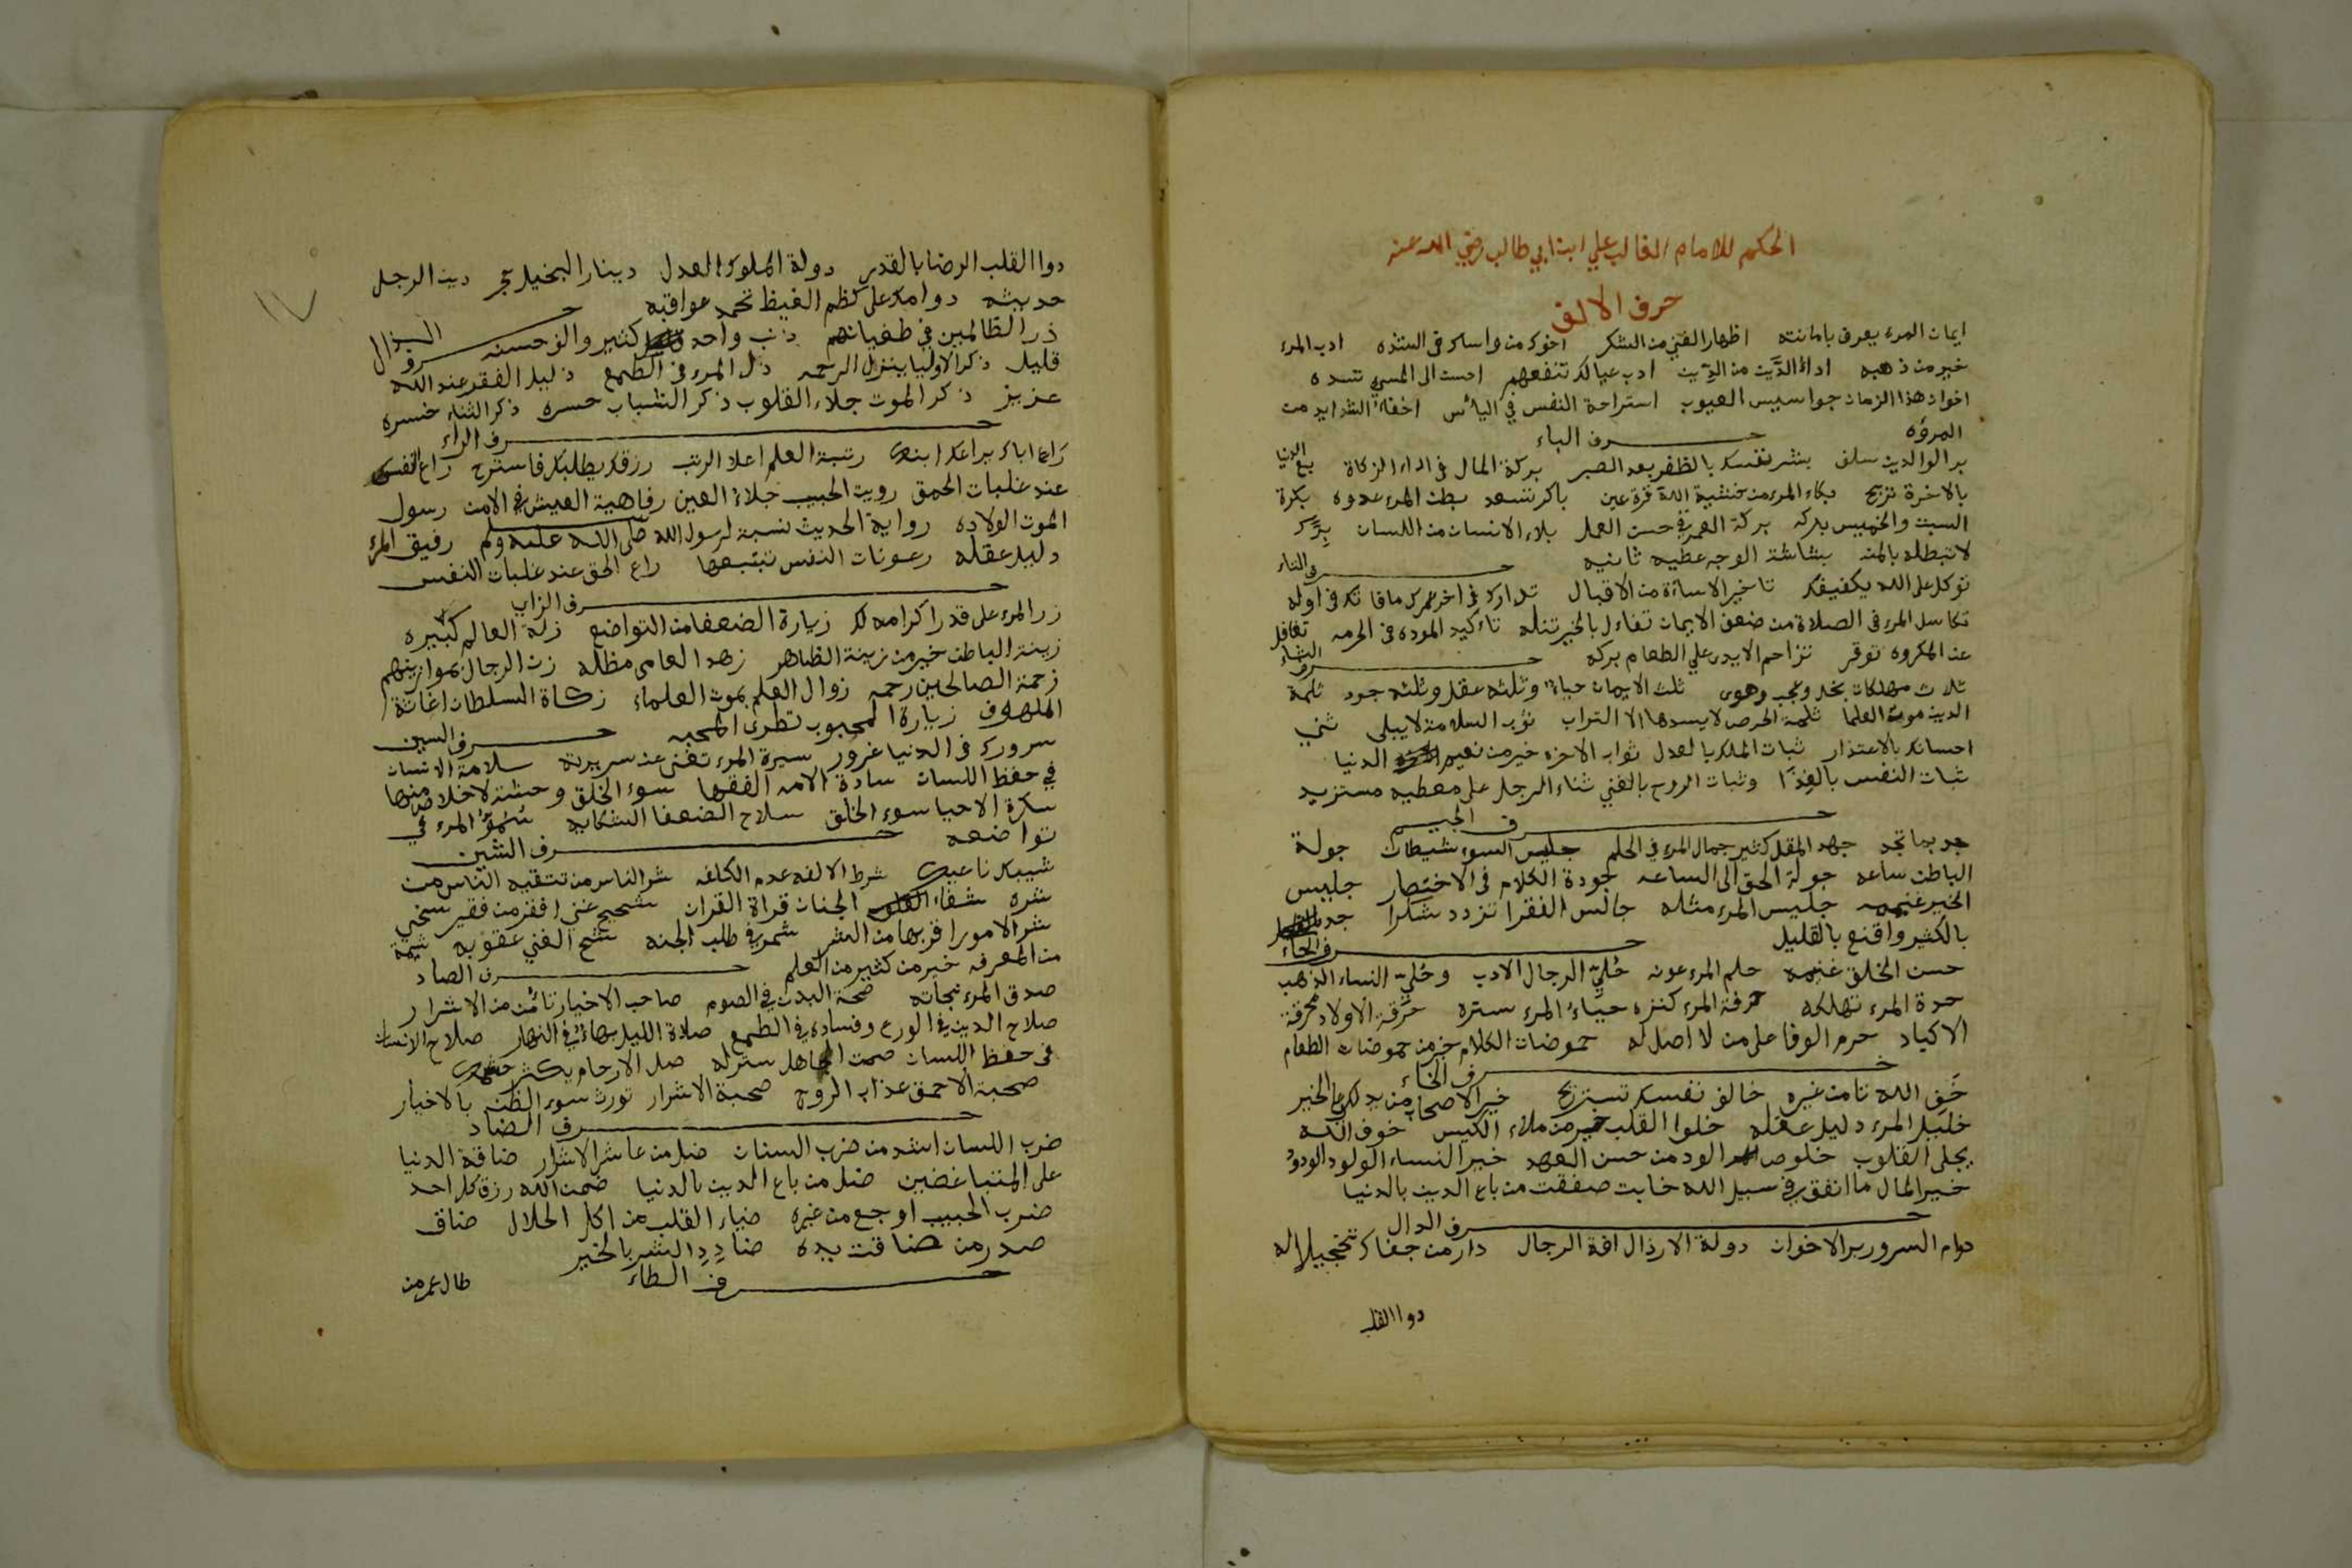 الحكم للامام الغالب علي ابن ابي طالب رضي الله عنه
حرف الالف
ايمان المرء يعرف بامانته اظهار الغني من الشكر اخوك من واساك في الشده ادب المرء
خير من ذهبه اداء الدَّين من الدِّين ادب عيالك تنفعهم احسن الى المسي تسده
اخوان هذا الزمان جواسيس العيوب استراحة النفس في الياس اخفاء الشدايد من
المروه حرف الباء
بر الوالدين سلف بشر نفسك بالظفر بعد الصبر بركة المال في اداء الزكاة بع الدنيا
بالاخرة تربح بكاء المرء من خشية الله قرة عين باكر تسعد بطن المرء عدوه بكرة
السبت والخميس بركه بركة العمر في حسن العمل بلاء الانسان من اللسان بِرَّك
لا تبطله بالمنه بشاشة الوجه عطيه ثانيه حرف التاء
توكل على الله يكفيك تاخير الاساءة من الاقبال تدارك في اخر عمرك ما فاتك في اوله
تكاسل المرء في الصلاة من ضعف الايمان تفاءل بالخير تنله تاكيد الموده في الحرمه تغافل
عن المكروه توقر تزاحم الايدي علي الطعام بركه حرف الثاء
ثلاث مهلكات بخل وعجب وهوى ثلث الايمان حياء وثلثه عقل وثلثه جود ثلمة
الدين موت العلما ثلمة الحرص لا يسدها الا التراب ثوب السلامة لا يبلى ثني
احسانك بالاعتذار ثبات الملك بالعدل ثواب الاخره خير من نعيم الدنيا
ثبات النفس بالغذا وثبات الروح بالغني ثناء الرجل على معطيه مستزيد
حرف الجيم
جد بما تجد جهد المقل كثير جمال المرء في الحلم جليس السوء شيطان جولة
الباطن ساعه جولة الحق الى الساعه جودة الكلام في الاختصار جليس
الخير غنيمه جليس المرء مثله جالس الفقرا تزدد شكرا جد
بالكثير واقنع بالقليل حرف الحاء
حسن الخلق غنيمه حلم المرء عونه حُليّ الرجال الادب وحُليّ النساء الذهب
حدة المرء تهلكه حرفة المرء كنزه حياء المرء ستره حرقة الاولاد محرقة
الاكباد حرم الوفا على من لا اصل له حموضات الكلام خير من حموضات الطعام
حرف الخاء
خَف الله تامن غيره خالف نفسك تستريح خير الاصحاب من يدلك على الخير
خليل المرء دليل عقله خلوا القلب خير من ملاء الكيس خوف الله
يجلى القلوب خلوص الود من حسن العهد خير النساء الولود الودود
خير المال ما انفق في سبيل الله خابت صفقت من باع الدين بالدنيا
حرف الدال
دوام السرور بر الاخوان دولة الارذال افة الرجال دار من جفاك تخجيلا له
دوا القلب
دوا القلب الرضا بالقدر دولة الملوك العدل دينار البخيل حجر دين الرجل
حديثه دوامك على كظم الغيظ تحمد عواقبه حرف الذال
ذر الظالمين في طغيانهم ذنب واحد كثير والف حسنه
قليل ذكر الاوليا ينزل الرحمه ذل المرء في الطمع ذليل الفقر عند الله
عزيز ذكر الموت جلاء القلوب ذكر الشباب حسره ذكر الثناء خسره
حرف الراء
راع اباك يراعك ابنك رتبة العلم اعلا الرتب رزقك يطلبك فاسترح راع النفس
عند غلبات الحمق رويت الحبيب جلاء العين رفاهية العيش في الامن رسول
الموت الولاده رواية الحديث نسبة لرسول الله صلى الله عليه وسلم رفيق المرء
دليل عقله رعونات النفس تتبعها راع الحق عند غلبات النفس
حرف الزاي
زر المرء على قدر اكرامه لك زيارة الضعفا من التواضع زلة العالم كبيره
زينة الباطن خير من زينة الظاهر زهد العامى مظله زن الرجال بموازينهم
زحمة الصالحين رحمه زوال العلم بموت العلماء زكاة السلطان اغاثة
الملهوف زيارة المحبوب تطرى المحبه حرف السين
سرورك في الدنيا غرور سيرة المرء تغنى عن سريرته سلامة الانسان
في حفظ اللسان سادة الامه الفقها سوء الخلق وحشة لا خلاص منها
سكرة الاحيا سوء الخلق سلاح الضعفا الشكايه سُمُوّ المرء في
تواضعه حرف الشين
شيبك ناعيك شرط الالفه عدم الكلفه شر الناس من تتقيه الناس من
شره شفاء الجنان قراة القران شحيح غني افقر من فقير سخي
شر الامور اقربها من الشر شمر في طلب الجنه شح الغني عقوبه شمة
من المعرفه خير من كثير من العلم حرف الصاد
صدق المرء نجاته صحة البدن في الصوم صاحب الاخيار تامن من الاشرار
صلاح الدين في الورع وفساده في الطمع صلاة الليل بهاء في النهار صلاح الانسان
في حفظ اللسان صمت الجاهل ستر له صل الارحام يكثر حشمك
صحبة الاحمق عذاب الروح صحبة الاشرار تورث سوء الظن بالاخيار
حرف الضاد
ضرب اللسان اشد من ضرب السنان ضل من عاشر الاشرار ضاقة الدنيا
على المتباغضين ضل من باع الدين بالدنيا ضمن الله رزق كل احد
ضرب الحبيب اوجع من غيره ضياء القلب من اكل الحلال ضاق
صدر من ضاقت يده ضادِدِ الشر بالخير
حرف الطاء
طال عمر من